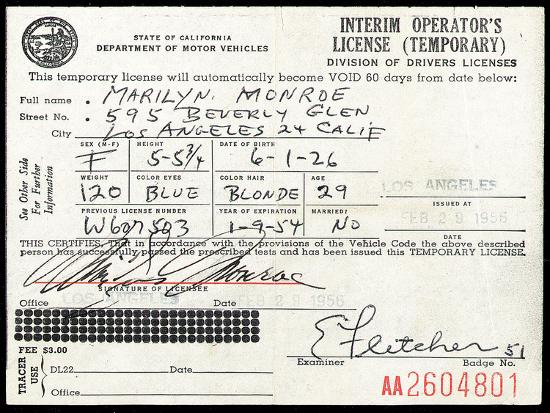 STATE OF CALIFORNIA
DEPARTMENT OF MOTOR VEHICLES
INTERIM OPERATOR'S
LICENSE (TEMPORARY)
DIVISION OF DRIVERS LICENSES
This temporary license will automatically become VOID 60 days from date below:
Full name . MARILYN. MONROE
Street No. . 595 BEVERLY GLEN
City LOS ANGELES 24 CALIF
See Other Side
For Further
Information
SEX (M-F) HEIGHT DATE OF BIRTH
F 5-5 3/4 6-1-26
WEIGHT COLOR EYES COLOR HAIR AGE
120 BLUE BLONDE 29
LOS ANGELES
ISSUED AT
PREVIOUS LICENSE NUMBER YEAR OF EXPIRATION MARRIED?
1-9-54 NO
FEB 29 1956
DATE
THIS CERTIFIES, That in accordance with the provisions of the Vehicle Code the above described
person has successfully passed the prescribed tests and has been issued this TEMPORARY LICENSE.
Monroe
SIGNATURE OF LICENSEE
LOS ANGELES FEB 29 1956
Office Date
E Fletcher 51
Examiner Badge No.
FEE $3.00
TRACER
USE
DL22 Date
Office
AA2604801